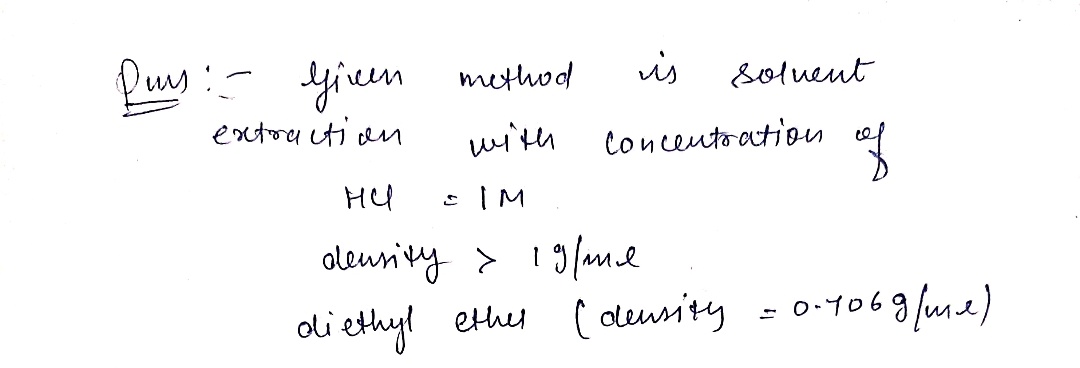 Ans :- Given method is solvent
extraction with concentration of
HCl = 1M
density > 1 g/ml
diethyl ether (density = 0.706 g/ml)